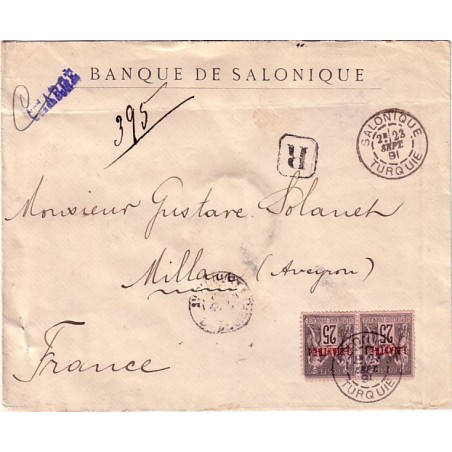 CHARGÉ
BANQUE DE SALONIQUE
395
R
SALONIQUE
2E 23
SEPT.
91
TURQUIE
Monsieur Gustave Solanet
Millau (Aveyron)
France
25 25
1 PIASTRE 1
SEPT.
91
TURQUIE